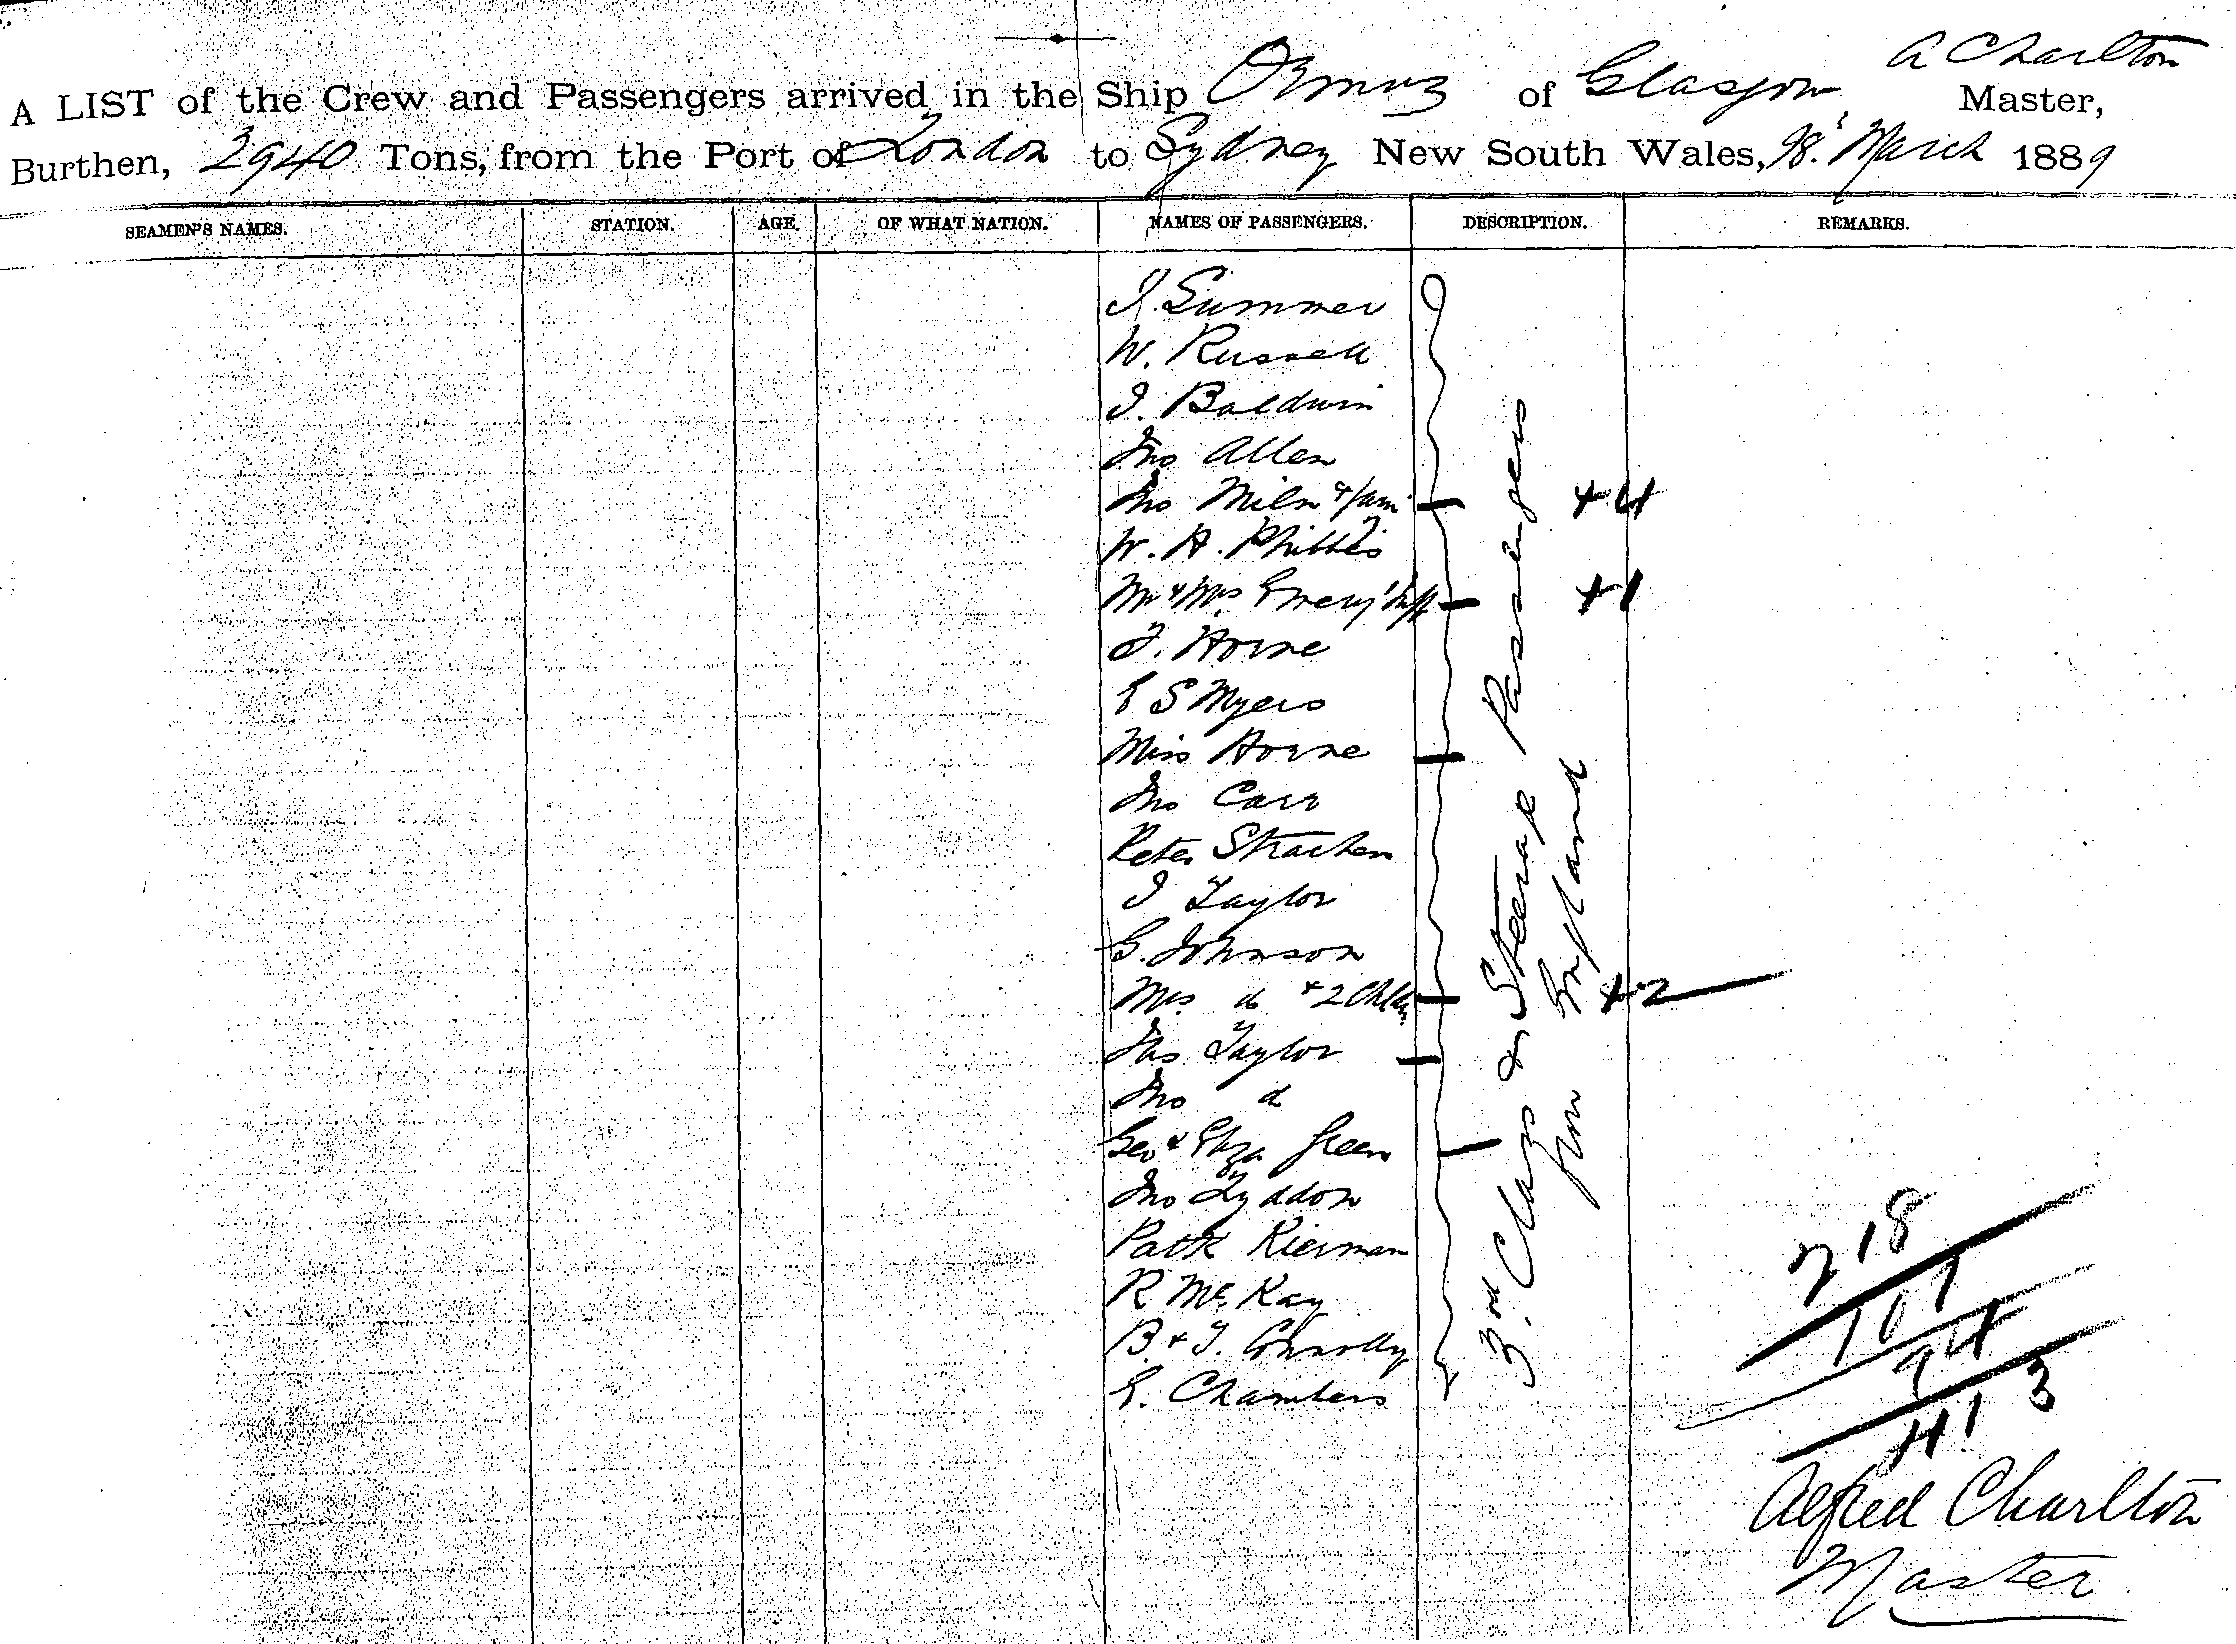 A Charlton
A LIST of the Crew and Passengers arrived in the Ship Ormuz of Glasgow Master,
Burthen, 2940 Tons, from the Port of London to Sydney New South Wales, 28 March 1889
SEAMEN'S NAMES. STATION. AGE. OF WHAT NATION. NAMES OF PASSENGERS. DESCRIPTION. REMARKS.
J. Summer
W. Russell
J. Baldwin
Jno Allen
Jno Miln & fam +4
W. H. Phibbs
Mr & Mrs Emery & inft +1
J. Horne
E S Myers
Miss Horne
Jno Carr
Peter Strachen
J Taylor
G. Johnson
Mrs do & 2 Chldn +2
Jas Taylor
Jno do
Geo & Eliza Green
Jno Lyddon
Patk Kiernan
R McKay
B & J. Connolly
E. Chambers
3rd Class & Steerage Passengers
from England
218
101
94
413
Alfred Charlton
Master